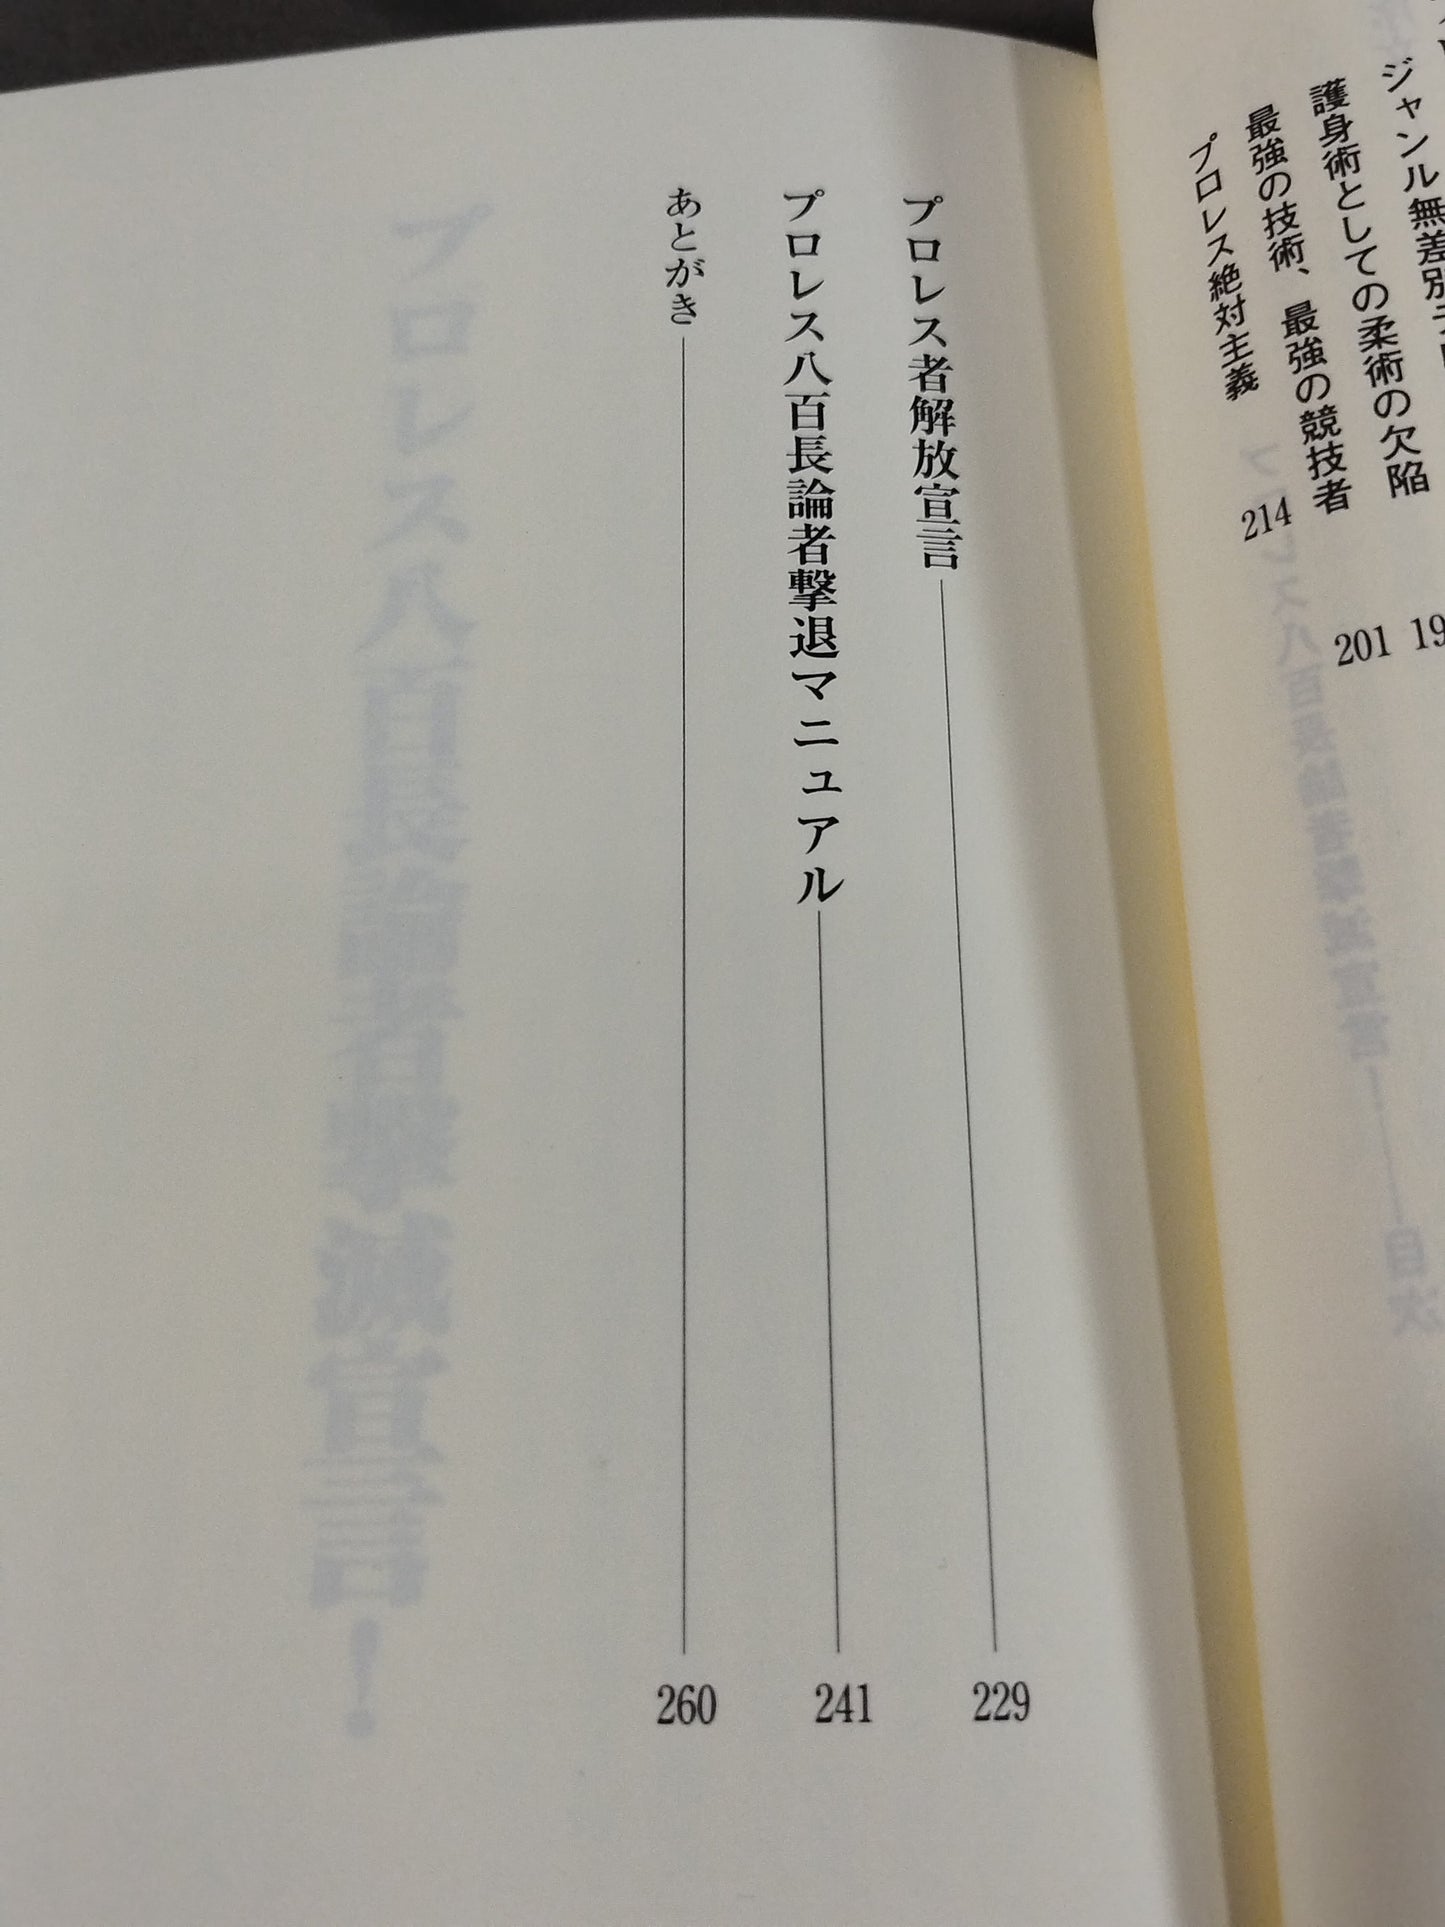 護身術としての柔術の欠陥 201
最強の技術、最強の競技者
プロレス絶対主義 214
プロレス者解放宣言 229
プロレス八百長論者撃退マニュアル 241
あとがき 260
プロレス八百長論者撃滅宣言!
プロレス八百長論者撃滅宣言!――目次